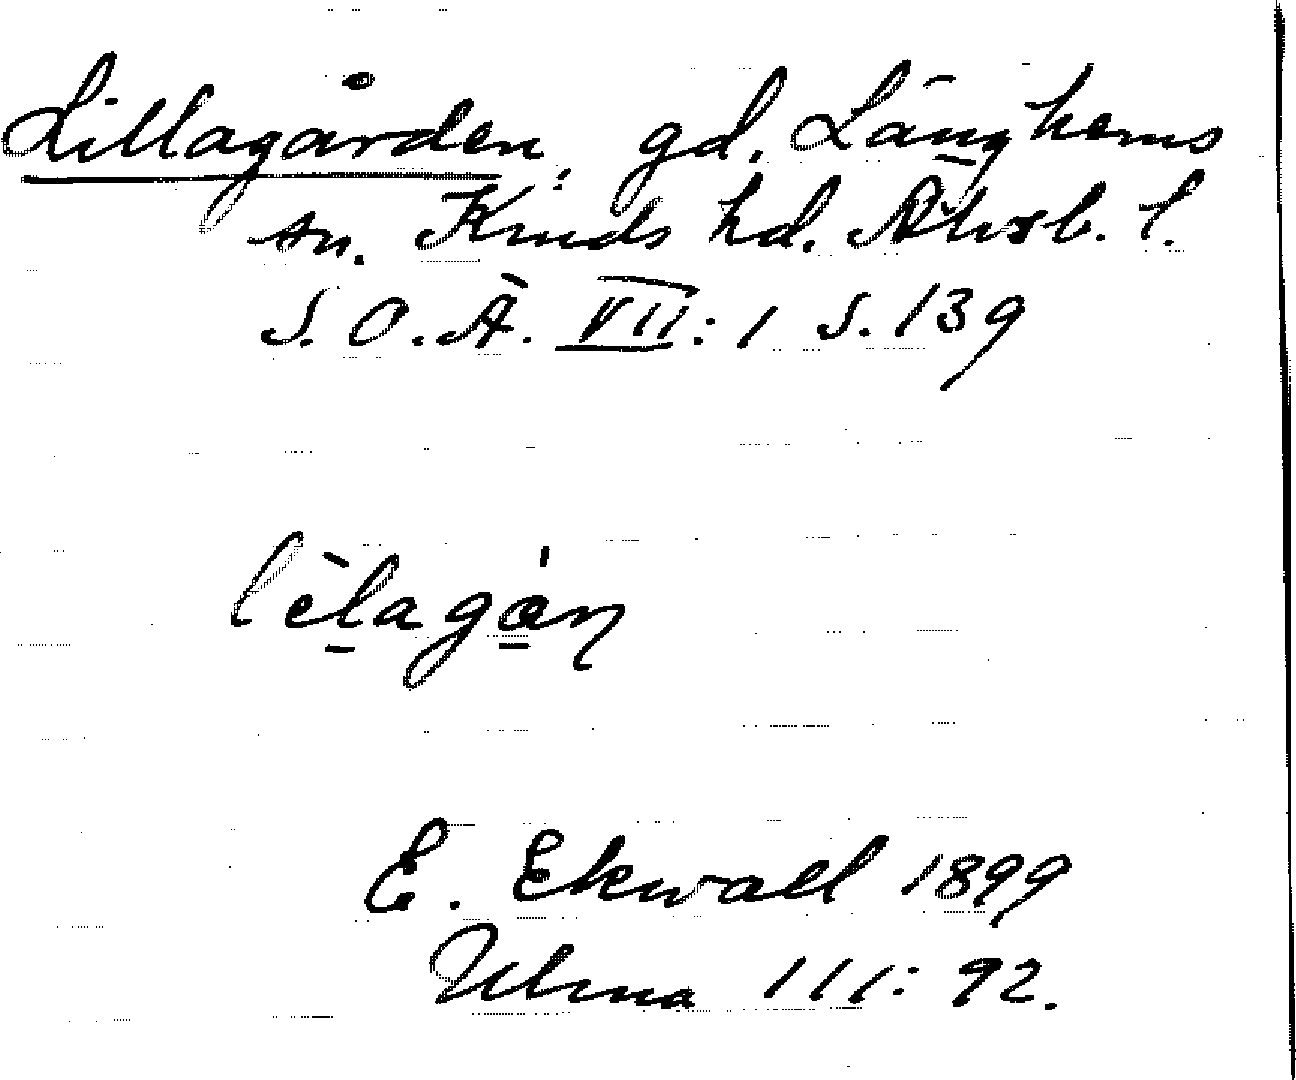 Lillagården, gd. Länghems
sn. Kinds hd. Älvsb. l.
S. O. Ä. VII: 1 s. 139
lèlagán
E. Ekwall 1899
Ulma 111: 92.